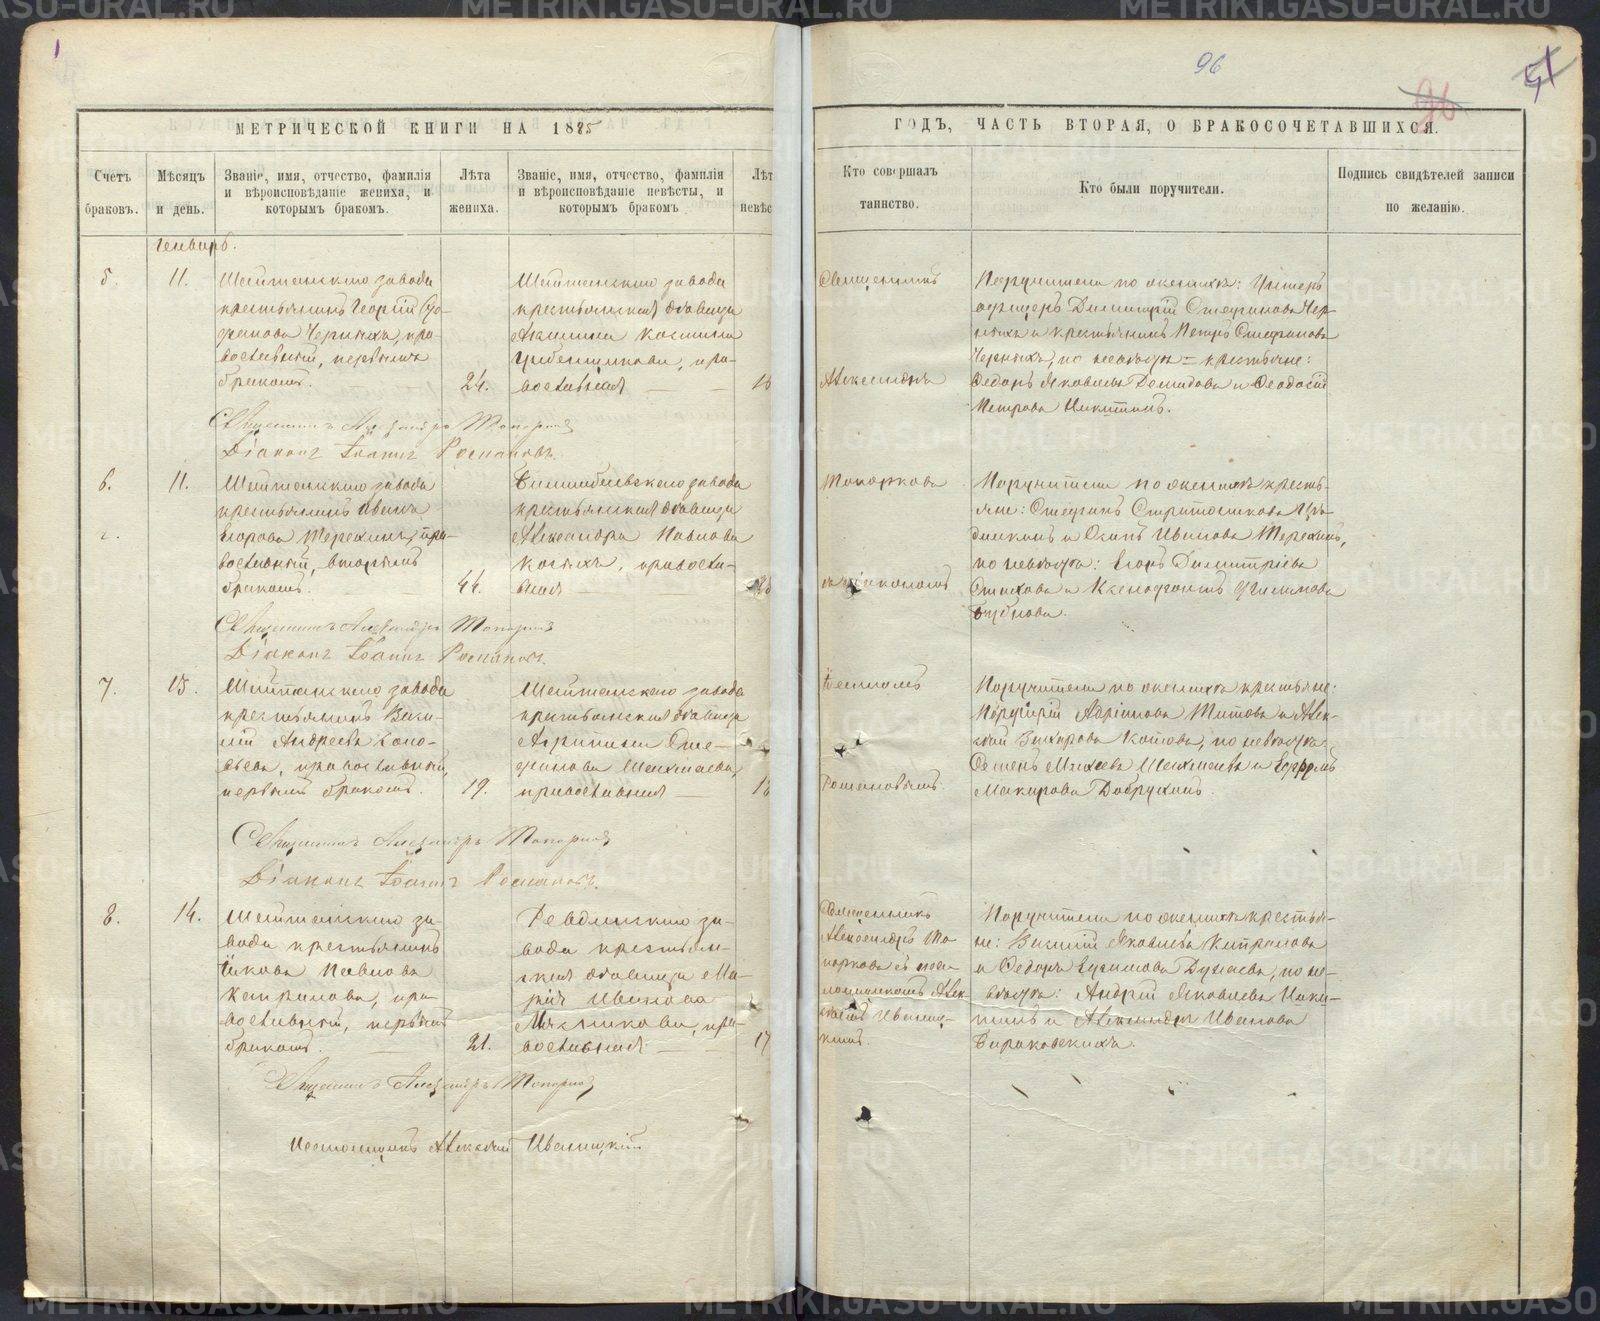 1
96
96
51
МЕТРИЧЕСКОЙ КНИГИ НА 1885
ГОДЪ, ЧАСТЬ ВТОРАЯ, О БРАКОСОЧЕТАВШИХСЯ.
Счетъ браковъ.
Мѣсяцъ и день.
Званіе, имя, отчество, фамилія
и вѣроисповѣданіе жениха, и
которымъ бракомъ.
Лѣта
жениха.
Званіе, имя, отчество, фамилія
и вѣроисповѣданіе невѣсты, и
которымъ бракомъ
Лѣт
невѣс
Кто совершалъ
таинство.
Кто были поручители.
Подпись свидѣтелей записи
по желанію.
Генварь.
5.
11.
Шайтанскаго завода
крестьянинъ Георгій
Черныхъ, пра-
вославный, первымъ
бракомъ.
24.
Шайтанскаго завода
крестьянская дѣвица
Акилина Косьмина
Гребенщикова, пра-
вославная
18
Священникъ
Александръ
Поручители по женихѣ: Унтеръ
офицеръ Димитрій Стефановъ Чер-
ныхъ и крестьянинъ Петръ Стефановъ
Черныхъ, по невѣстѣ - крестьяне:
Федоръ Яковлевъ Демидовъ и Феодосій
Петровъ Никитинъ.
Священникъ Александръ Топорковъ
Діаконъ Іоаннъ Романовъ.
6.
11.
Шайтанскаго завода
крестьянинъ Иванъ
Егоровъ Терехинъ, пра-
вославный, вторымъ
бракомъ.
44.
Билимбаевскаго завода
крестьянская дѣвица
Александра Павлова
православ-
ная
Топорковъ
съ діакономъ
Поручители по женихѣ кресть-
яне: Стефанъ
и Иванова Терехинъ,
по невѣстѣ: Егоръ Димитріевъ
Стаховъ и Ксенофонтъ Филимоновъ
Бубновъ.
Священникъ Александръ Топорковъ
Діаконъ Іоаннъ Романовъ.
7.
13.
Шайтанскаго завода
крестьянинъ Васи-
лій Андреевъ Коно-
валовъ, православный,
первымъ бракомъ.
19.
Шайтанскаго завода
крестьянская дѣвица
Агрипина Сте-
фанова
православная
18
Іоанномъ
Романовымъ.
Поручители по женихѣ крестьяне:
Порфирій Титовъ и Алек-
сѣй Захаровъ Котовъ, по невѣстѣ:
Семенъ Михеевъ и
Макаровъ Добрухинъ.
Священникъ Александръ Топорковъ
Діаконъ Іоаннъ Романовъ.
8.
14.
Шайтанскаго за-
вода крестьянинъ
Іаковъ Павловъ
Кипріановъ, пра-
вославный, первымъ
бракомъ.
21.
Ревдинскаго за-
вода крестьян-
ская дѣвица Ма-
рія Иванова
Мясникова, пра-
вославная
17
Священникъ
Александръ То-
порковъ съ пса-
ломщикомъ Алек-
сѣемъ Иваниц-
кимъ.
Поручители по женихѣ крестья-
не: Василій Яковлевъ Кипріановъ
и Федоръ Дунаевъ, по не-
вѣстѣ: Андрей Яковлевъ Ники-
тинъ и Александръ Ивановъ
Бараковскихъ.
Священникъ Александръ Топорковъ
Псаломщикъ Алексѣй Иваницкій
METRIKI.GASO-URAL.RU